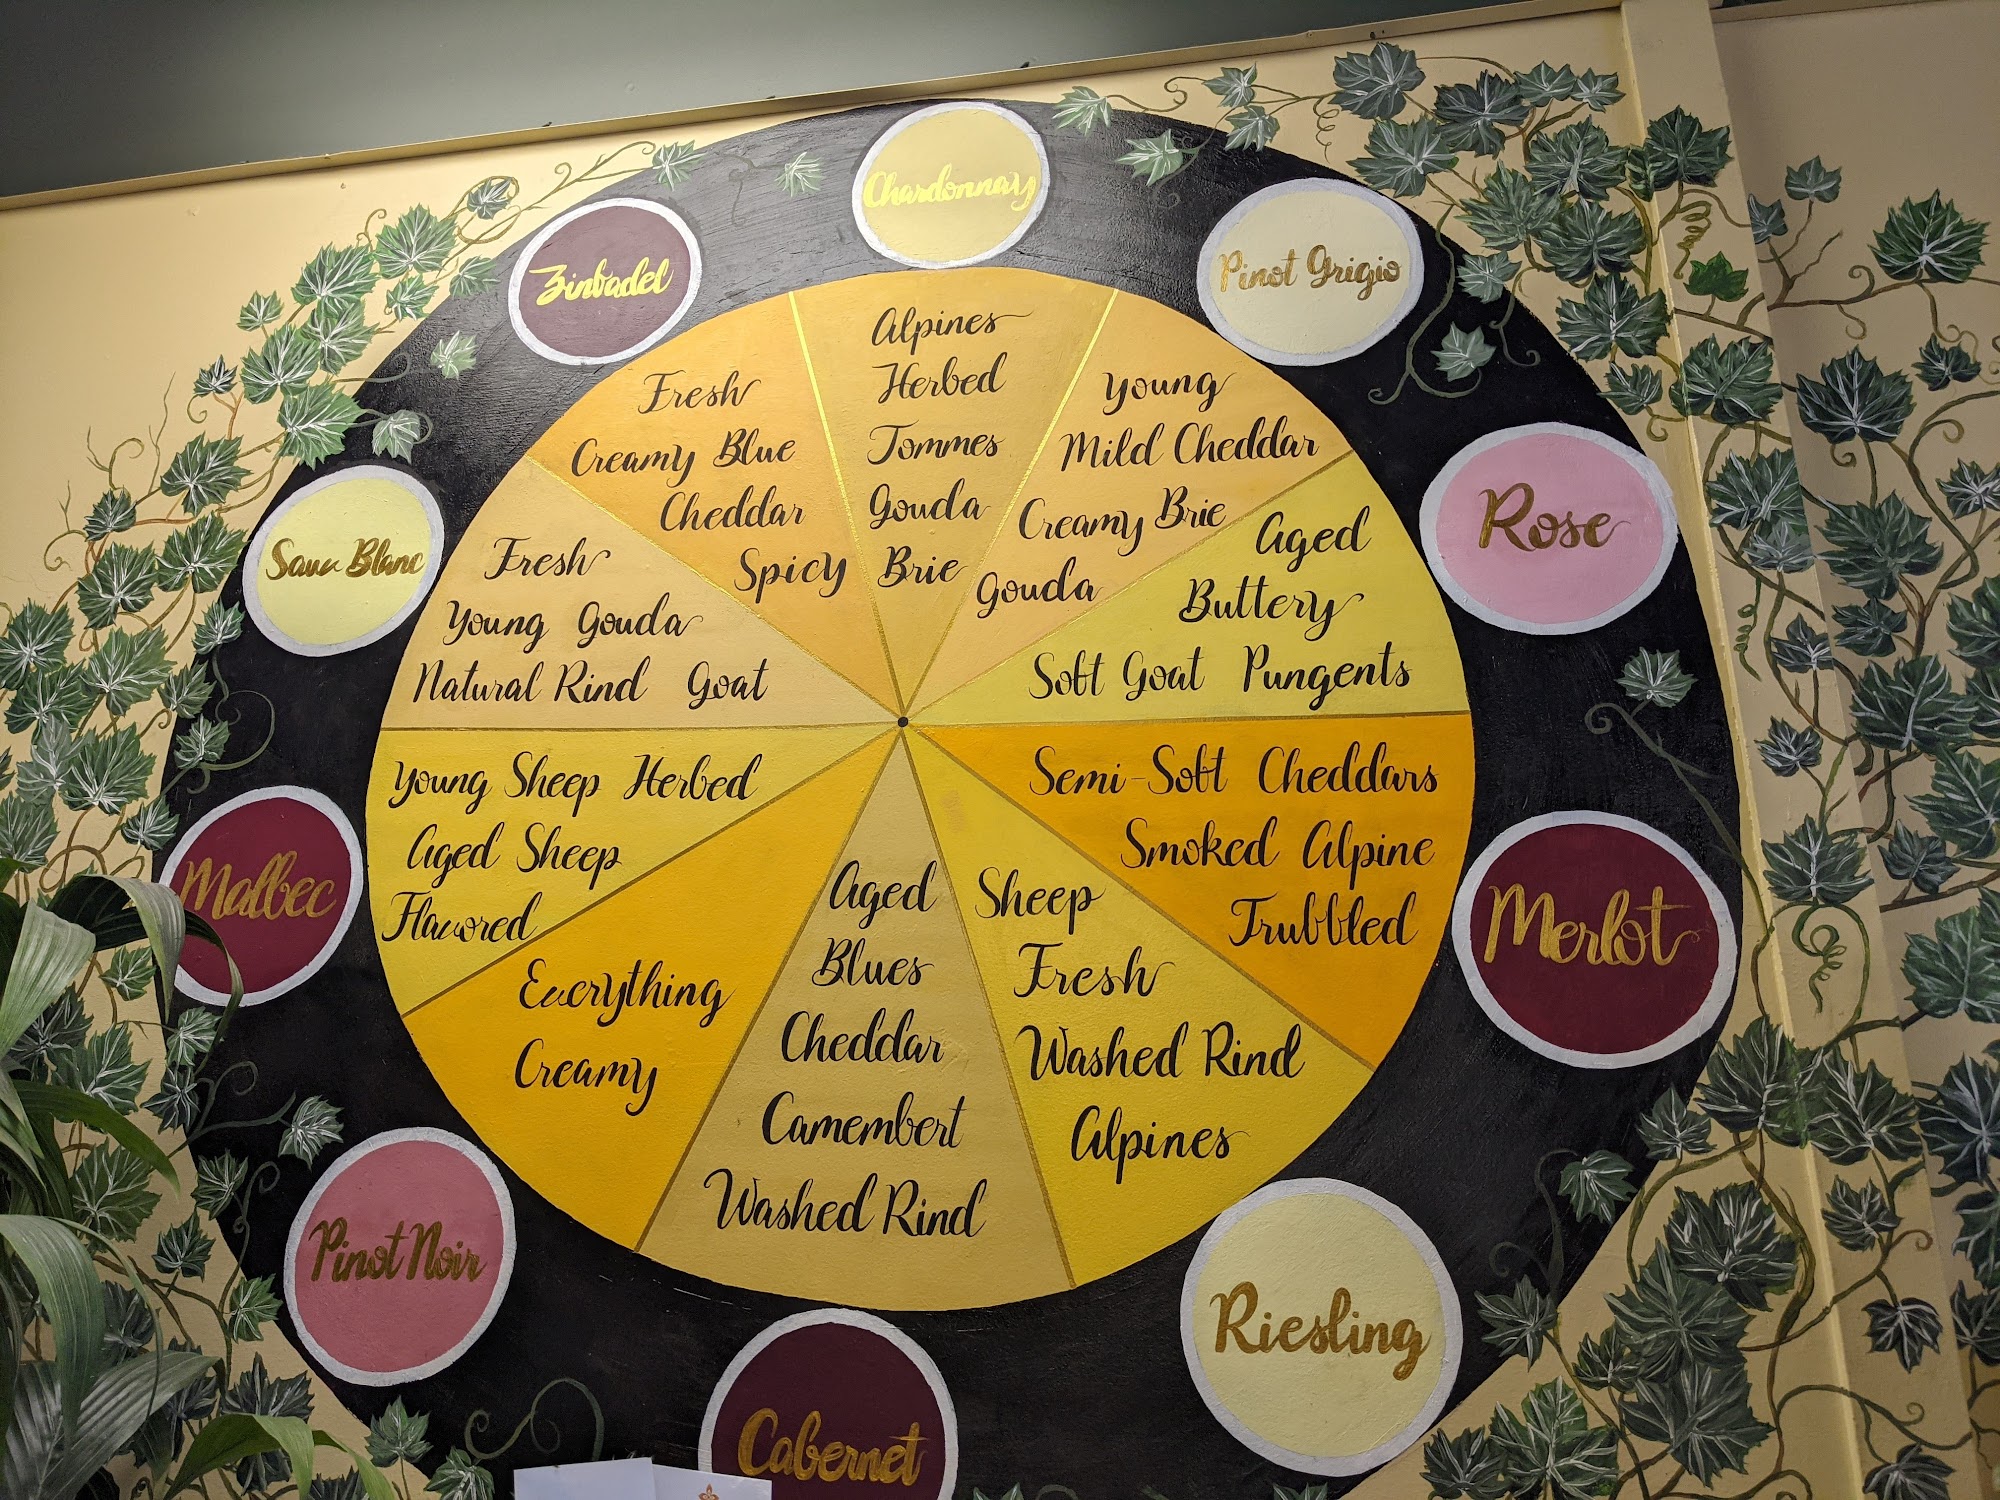 Chardonnay
Alpines
Herbed
Tommes
Gouda
Brie
Pinot Grigio
Young
Mild Cheddar
Creamy Brie
Gouda
Rose
Aged
Buttery
Soft Goat Pungents
Merlot
Semi-Soft Cheddars
Smoked Alpine
Truffled
Riesling
Sheep
Fresh
Washed Rind
Alpines
Cabernet
Aged
Blues
Cheddar
Camembert
Washed Rind
Pinot Noir
Everything
Creamy
Malbec
Young Sheep Herbed
Aged Sheep
Flavored
Sauv Blanc
Fresh
Young Gouda
Natural Rind Goat
Zinfadel
Fresh
Creamy Blue
Cheddar
Spicy